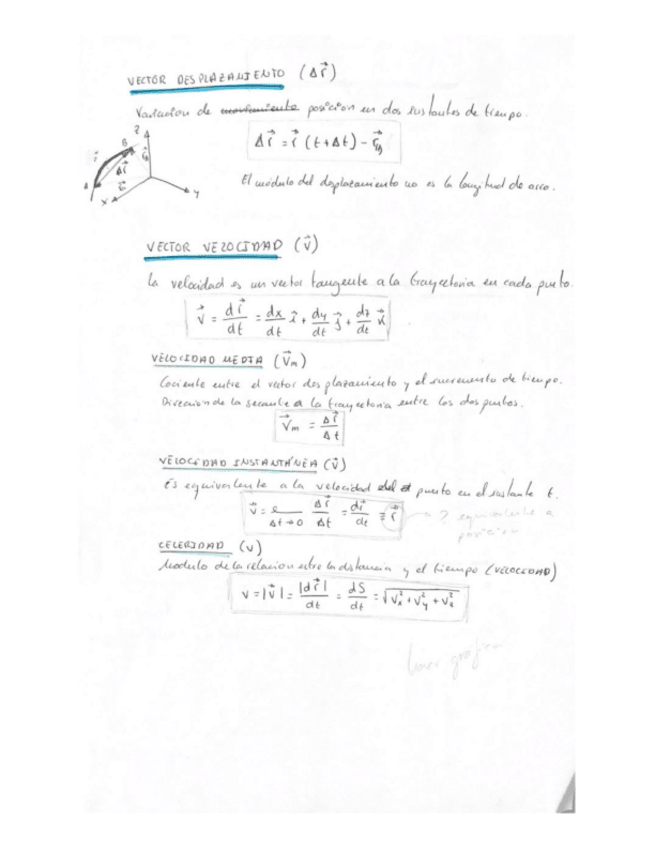 VECTOR DESPLAZAMIENTO (Δr⃗)
Variacion de movimiento posicion en dos instantes de tiempo.
Δr⃗ = r⃗ (t+Δt) - r⃗
Z
B
r⃗
Δr⃗
A
X
Y
El módulo del desplazamiento no es la longitud de arco.
VECTOR VELOCIDAD (v⃗)
La velocidad es un vector tangente a la trayectoria en cada punto.
v⃗ = dr⃗/dt = dx/dt i⃗ + dy/dt j⃗ + dz/dt k⃗
VELOCIDAD MEDIA (v⃗m)
Cociente entre el vector desplazamiento y el incremento de tiempo.
Direccion de la secante a la trayectoria entre los dos puntos.
v⃗m = Δr⃗/Δt
VELOCIDAD INSTANTÁNEA (v⃗)
Es equivalente a la velocidad del punto en el instante t.
v⃗ = Δt→0 Δr⃗/Δt = dr⃗/dt = r⃗ → ? equivalente a
posicion
CELERIDAD (v)
Modulo de la relacion entre la distancia y el tiempo (VELOCIDAD)
v = |v⃗| = |dr⃗|/dt = dS/dt = √v²x + v²y + v²z
hacer grafica